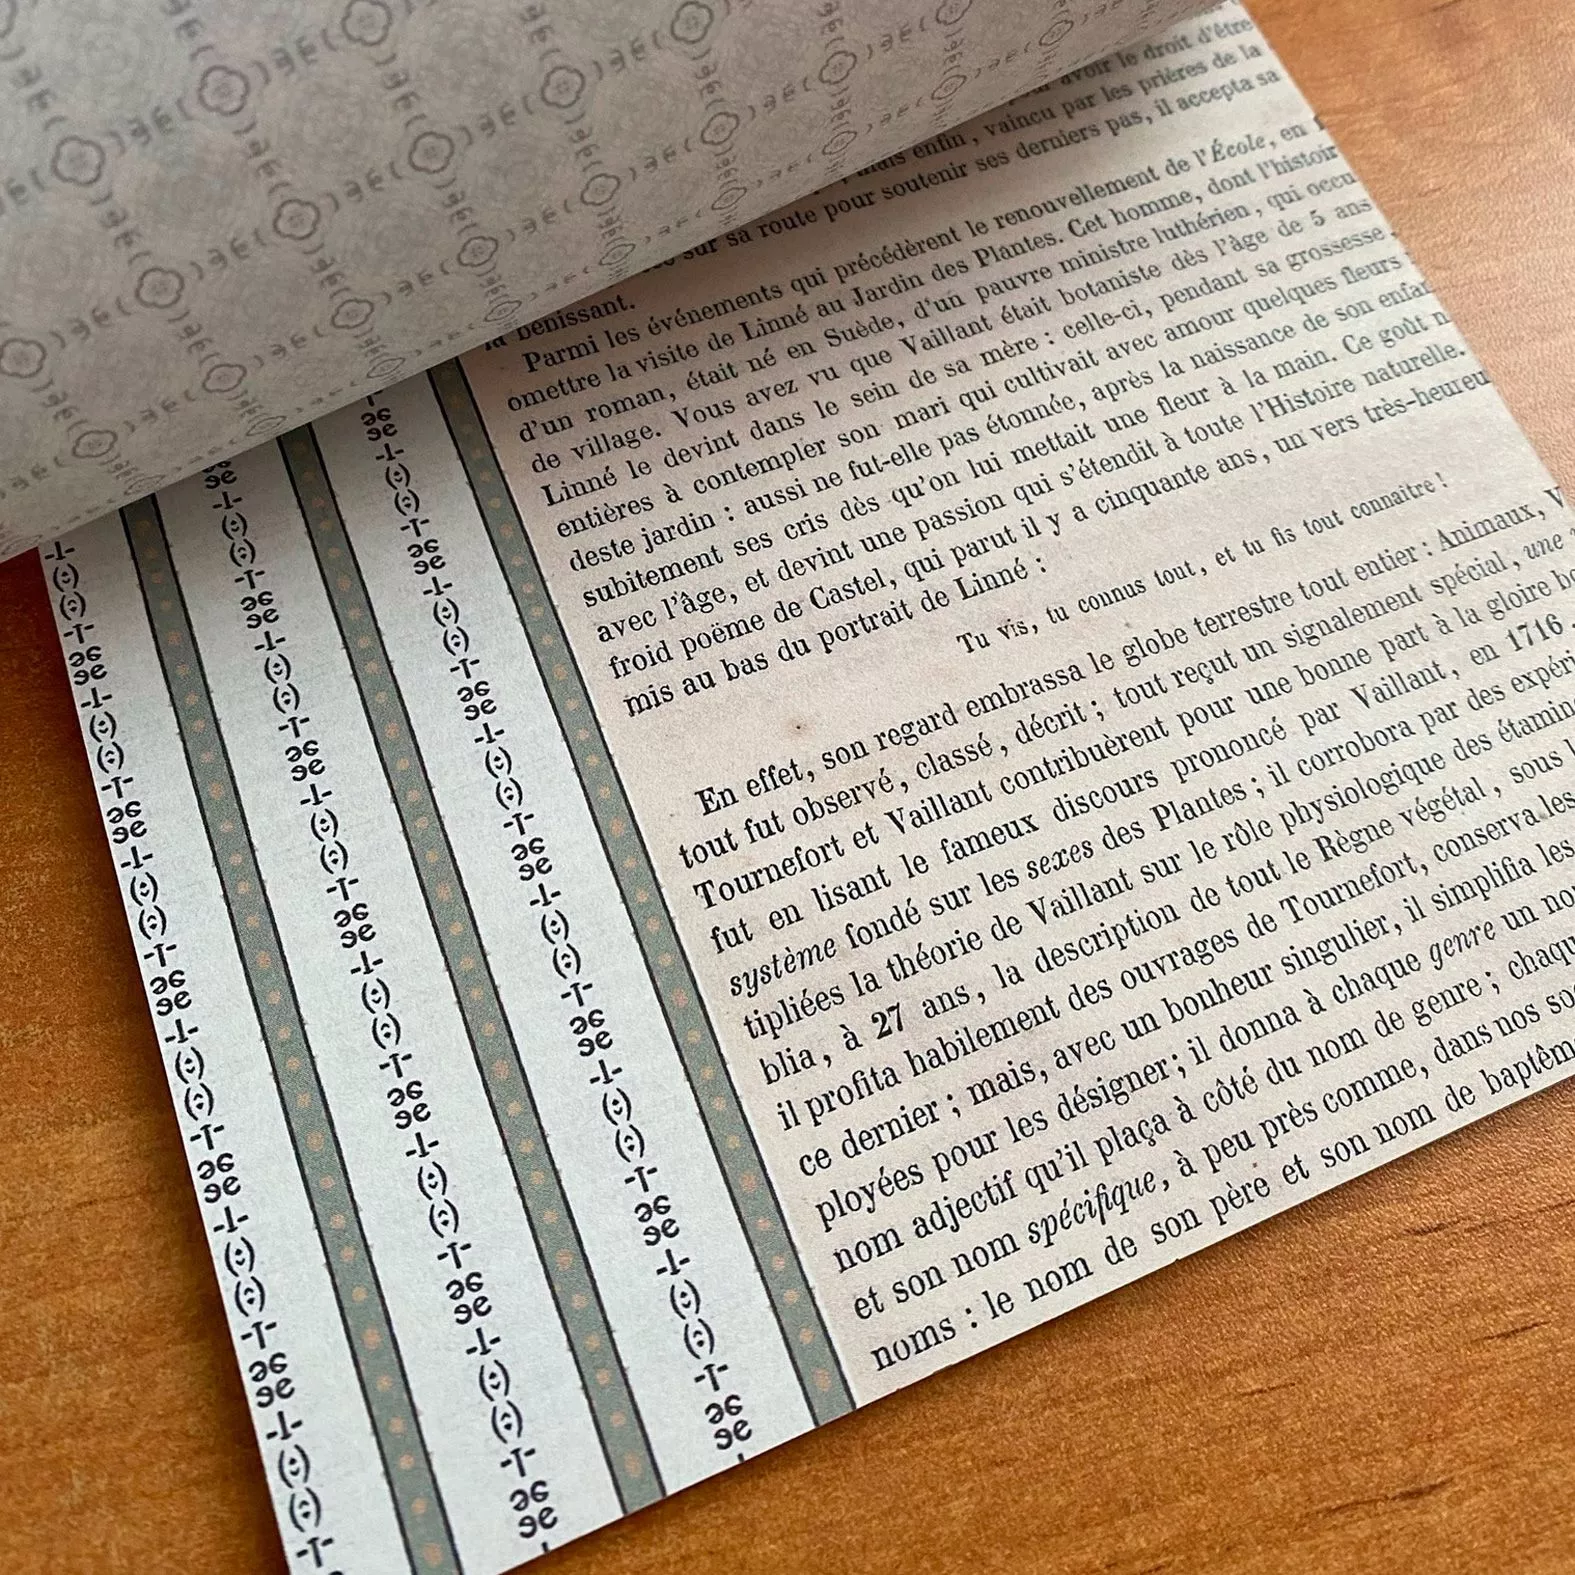 avoir le droit d'être
mais enfin, vaincu par les prières de la
sur sa route pour soutenir ses derniers pas, il accepta sa
la bénissant.
Parmi les événements qui précédèrent le renouvellement de l'École, en
omettre la visite de Linné au Jardin des Plantes. Cet homme, dont l'histoir
d'un roman, était né en Suède, d'un pauvre ministre luthérien, qui occu
de village. Vous avez vu que Vaillant était botaniste dès l'âge de 5 ans
Linné le devint dans le sein de sa mère : celle-ci, pendant sa grossesse,
entières à contempler son mari qui cultivait avec amour quelques fleurs
deste jardin : aussi ne fut-elle pas étonnée, après la naissance de son enfan
subitement ses cris dès qu'on lui mettait une fleur à la main. Ce goût n
avec l'âge, et devint une passion qui s'étendit à toute l'Histoire naturelle.
froid poëme de Castel, qui parut il y a cinquante ans, un vers très-heureu
mis au bas du portrait de Linné :
Tu vis, tu connus tout, et tu fis tout connaitre !
En effet, son regard embrassa le globe terrestre tout entier : Animaux, V
tout fut observé, classé, décrit ; tout reçut un signalement spécial, une
Tournefort et Vaillant contribuèrent pour une bonne part à la gloire bo
fut en lisant le fameux discours prononcé par Vaillant, en 1716,
système fondé sur les sexes des Plantes ; il corrobora par des expéri
tipliées la théorie de Vaillant sur le rôle physiologique des étamin
blia, à 27 ans, la description de tout le Règne végétal, sous
il profita habilement des ouvrages de Tournefort, conserva les
ce dernier ; mais, avec un bonheur singulier, il simplifia les
ployées pour les désigner ; il donna à chaque genre un no
nom adjectif qu'il plaça à côté du nom de genre ; chaqu
et son nom spécifique, à peu près comme, dans nos so
noms : le nom de son père et son nom de baptêm